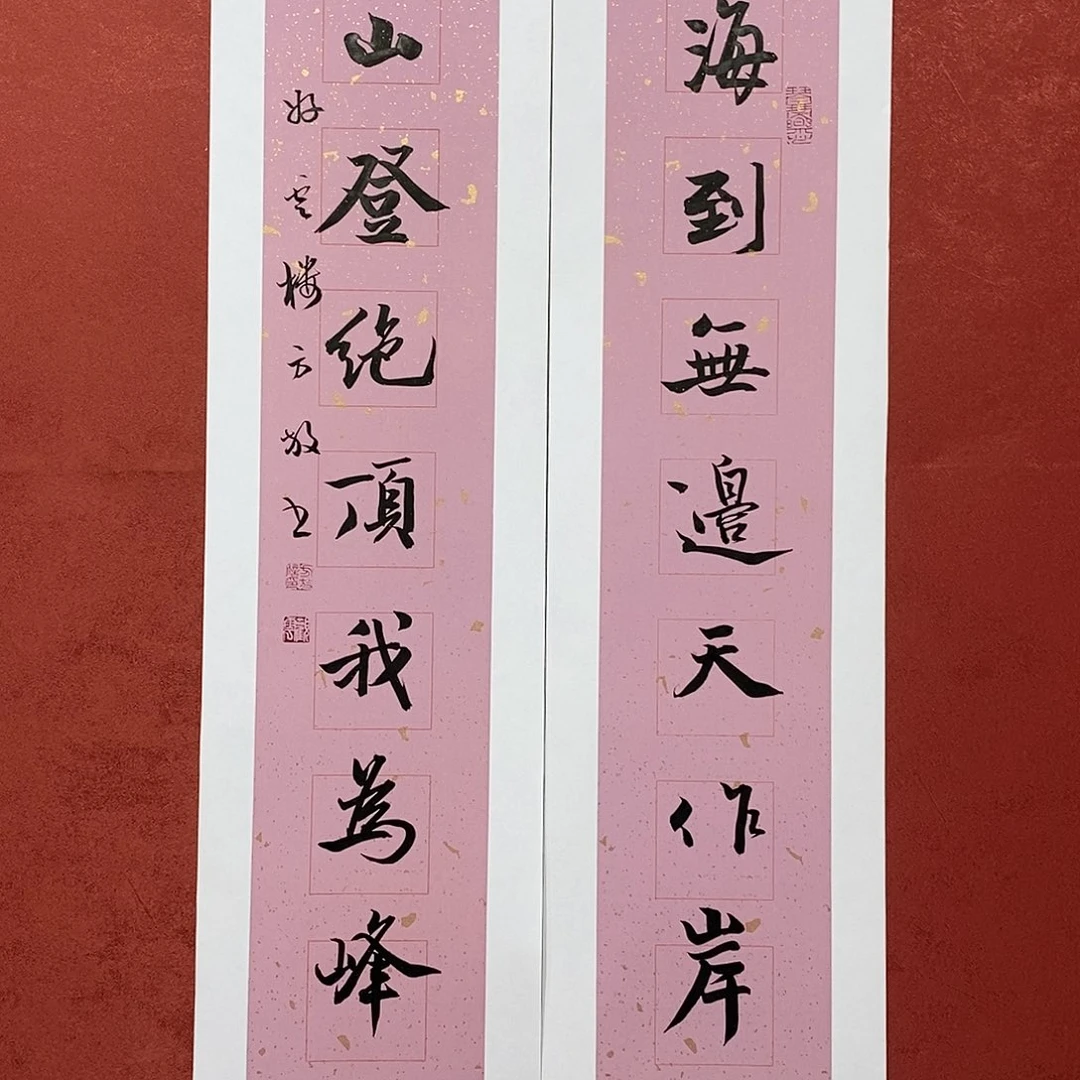 海到無邊天作岸
山登絶頂我為峰
好雲樓方放書